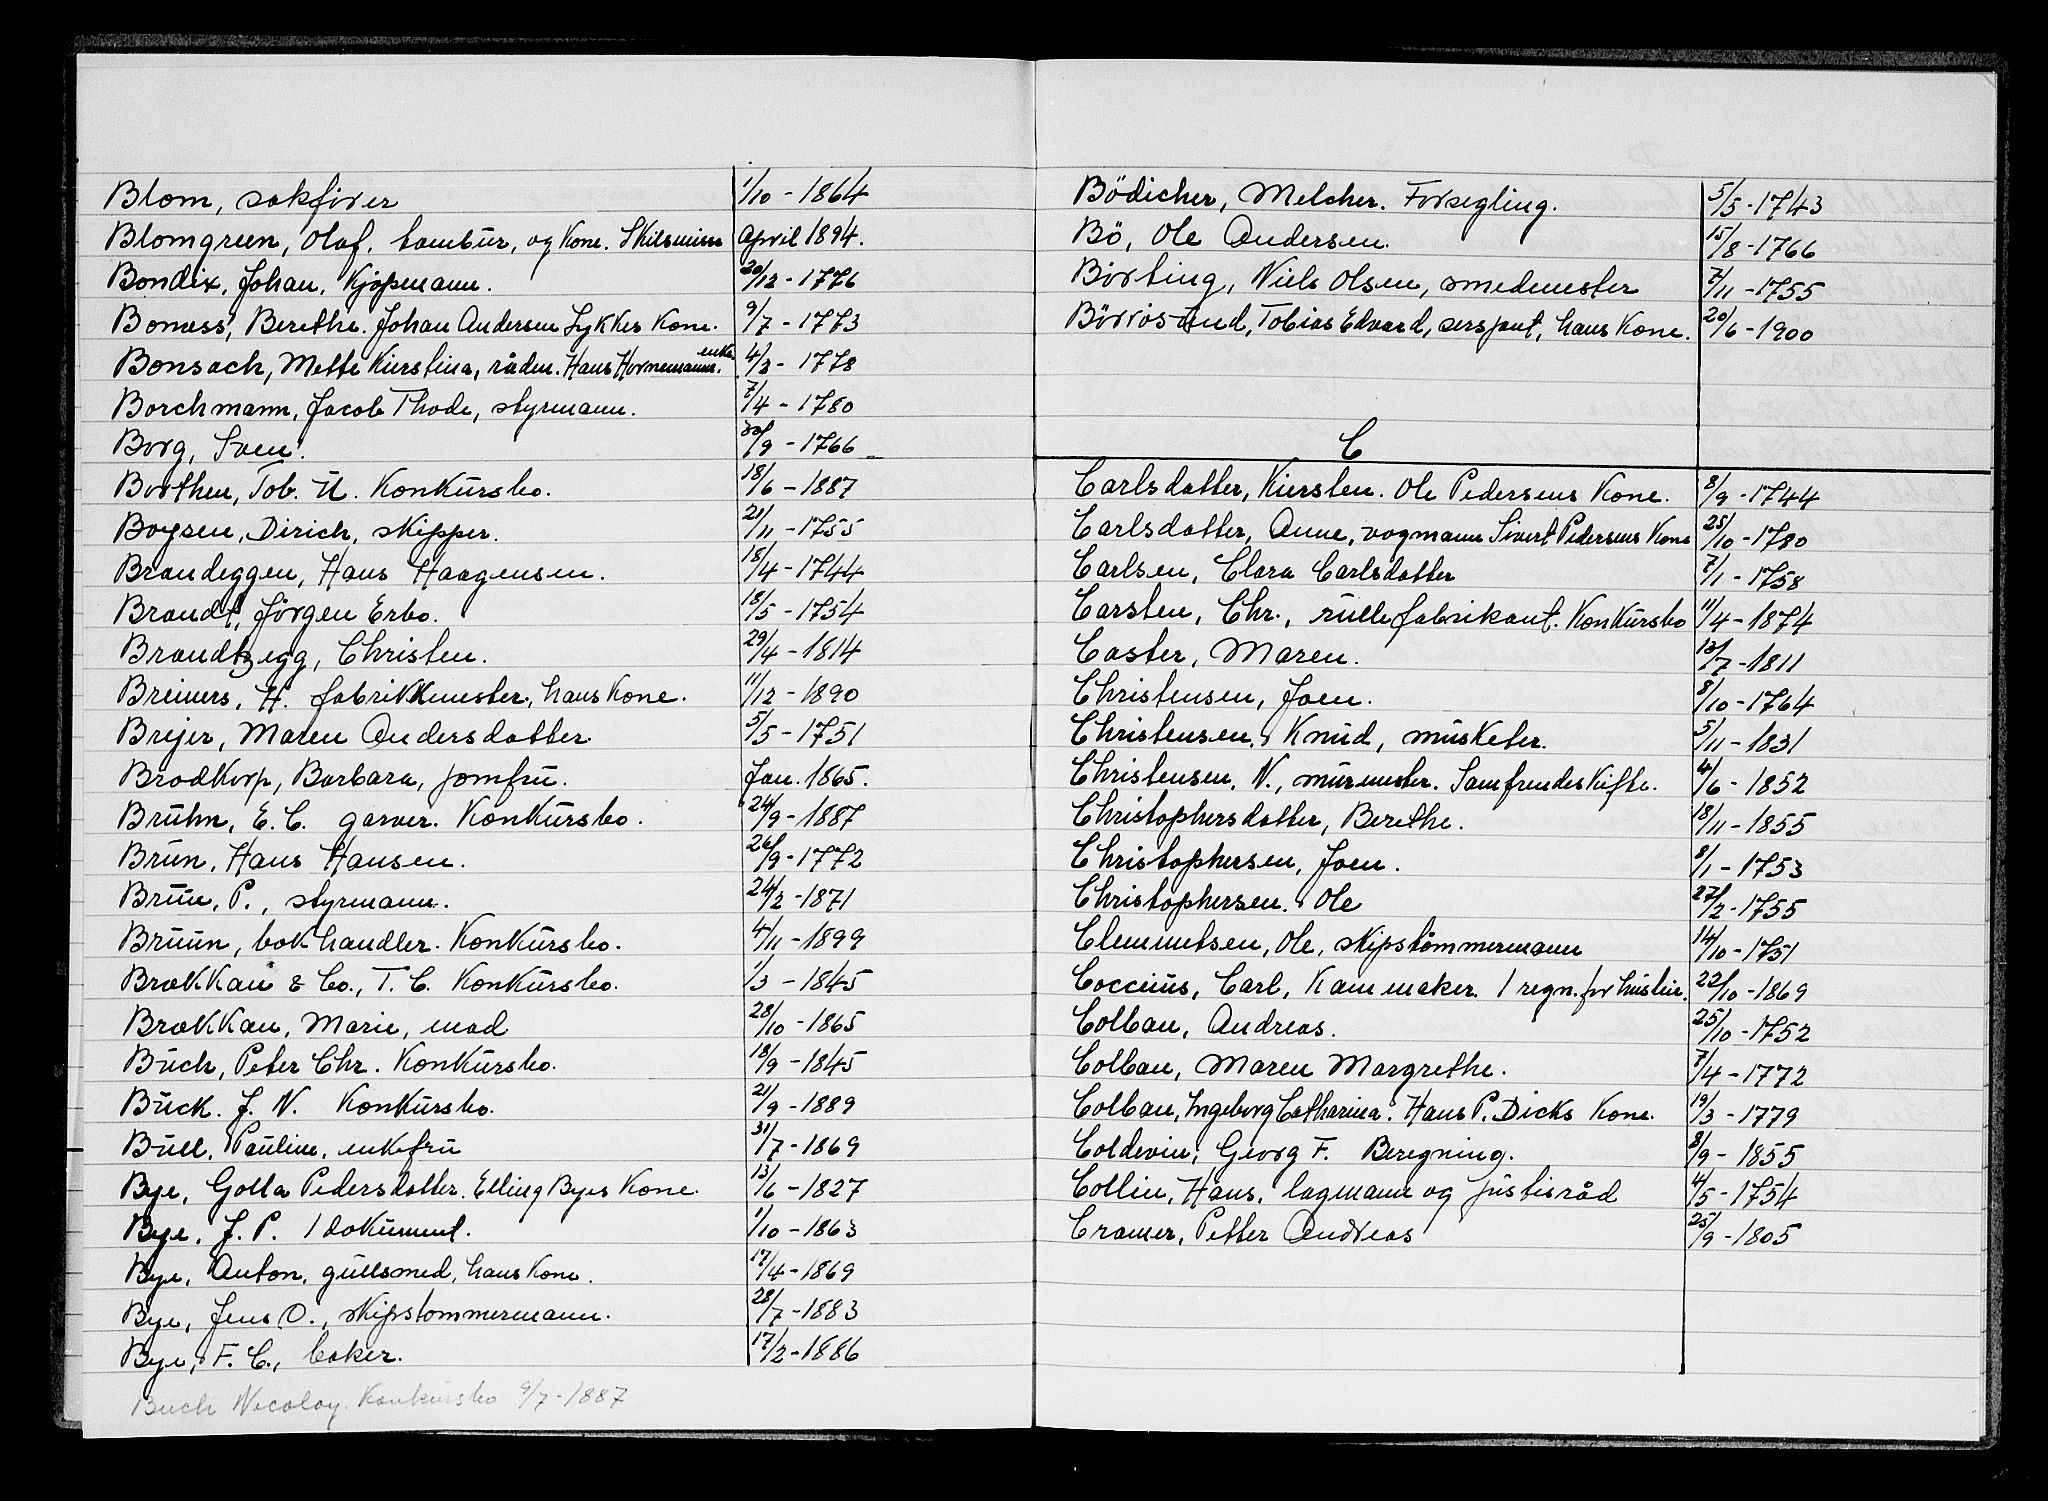 Blom, sakfører 1/10 - 1864
Blomgreen, Olaf. tambur, og Kone. Skilsmisse April 1894.
Bondix, Johan, Kjøpmann. 20/12 - 1776
Bonass, Berethe. Johan Andersen Lykkes Kone. 9/7 - 1773
Bonsach, Mette Kirstina, rådm. Hans Hornemanns enke. 4/3 - 1778
Borchmann, Jacob Thode, styrmann. 7/4 - 1780
Borg, Sven. 30/9 - 1766
Borthen, Tob. U. Konkursbo. 18/6 - 1887
Boysen, Dirich, skipper. 21/11 - 1755
Brandeggen, Hans Haagensen. 18/4 - 1744
Brandt, Jörgen Erbo. 18/5 - 1754
Brandtzegg, Christen. 29/4 - 1814
Breimers, H. fabrikkmester, hans Kone. 11/12 - 1890
Brejer, Maren Andersdatter 5/5 - 1751
Brodkorp, Barbara, jomfru. Jan. 1865.
Bruhn, E. C. garver. Konkursbo. 24/9 - 1887
Brun, Hans Hansen. 26/9 - 1772
Bruun, P., styrmann. 24/2 - 1871
Bruun, bokhandler. Konkursbo. 4/11 - 1899
Brækkan & Co., T. C. Konkursbo. 1/3 - 1845
Brækkan, Marie, mad 28/10 - 1865
Buch, Peter Chr. Konkursbo. 18/9 - 1845
Buck. J. N. Konkursbo. 21/9 - 1889
Bull, Pauline, enkefru 31/7 - 1869
Bye, Golla Pedersdatter. Elling Byes Kone. 13/6 - 1827
Bye, J. P. 1 dokument. 1/10 - 1863
Bye, Anton, gullsmed, hans Kone. 17/4 - 1869
Bye, Jens O., skipstømmermann. 28/7 - 1883
Bye, F. C., baker. 17/2 - 1886
Buch Nicolay. Konkursbo 9/7 - 1887
Bödicher, Melcher. Forsegling. 5/5 - 1743
Bö, Ole Andersen. 15/8 - 1766
Börting, Niels Olsen, smedmester 7/11 - 1755
Tobias Edvard, sersjant, hans Kone. 20/6 - 1900
C
Carlsdatter, Kiersten. Ole Pedersens Kone. 8/9 - 1744
Carlsdatter, Anne, vogmann Sivert Pedersens Kone 25/10 - 1780
Carlsen, Clara Carlsdatter 7/1 - 1758
Carsten, Chr., rullefabrikant. Konkursbo 11/4 - 1874
Caster, Maren. 13/7 - 1811
Christensen, Joen. 8/10 - 1764
Christensen, Knud, musketer. 5/11 - 1831
Christensen, N., murmester. Samfrendeskifte. 4/6 - 1852
Christophersdatter, Berethe. 18/11 - 1855
Christophersen, Joen. 8/1 - 1753
Christophersen. Ole 27/2 - 1755
Clemmetsen, Ole, skipstömmermann 14/10 - 1751
Coccius, Carl, Kammaker. 1 regn. for hustru. 22/10 - 1869
Colban, Andreas. 25/10 - 1752
Colban, Maren Margrethe. 7/4 - 1772
Colban, Ingeborg Catharina. Hans P. Dicks Kone. 19/3 - 1779
Coldevin, Georg F. Beregning. 8/9 - 1855
Collin, Hans, lagmann og justisråd 4/5 - 1754
Cramer, Petter Andreas 25/9 - 1805